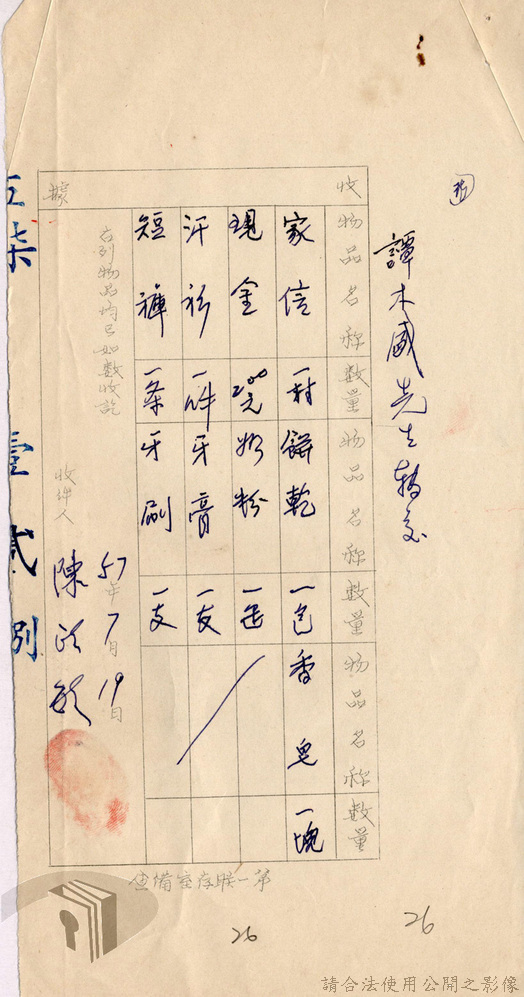 譚木盛先生轉交
收 據
物品名称 數量 物品名称 數量 物品名称 數量
家信 一封 餅乾 一包 香皂 一塊
現金 200元 奶粉 一缶
汗衫 一件 牙膏 一支
短褲 一条 牙刷 一支
右列物品均已如數收訖
57年7月19日
收件人 陳政敏
第一聯存室備查
柒 壹貳
26
26
請合法使用公開之影像